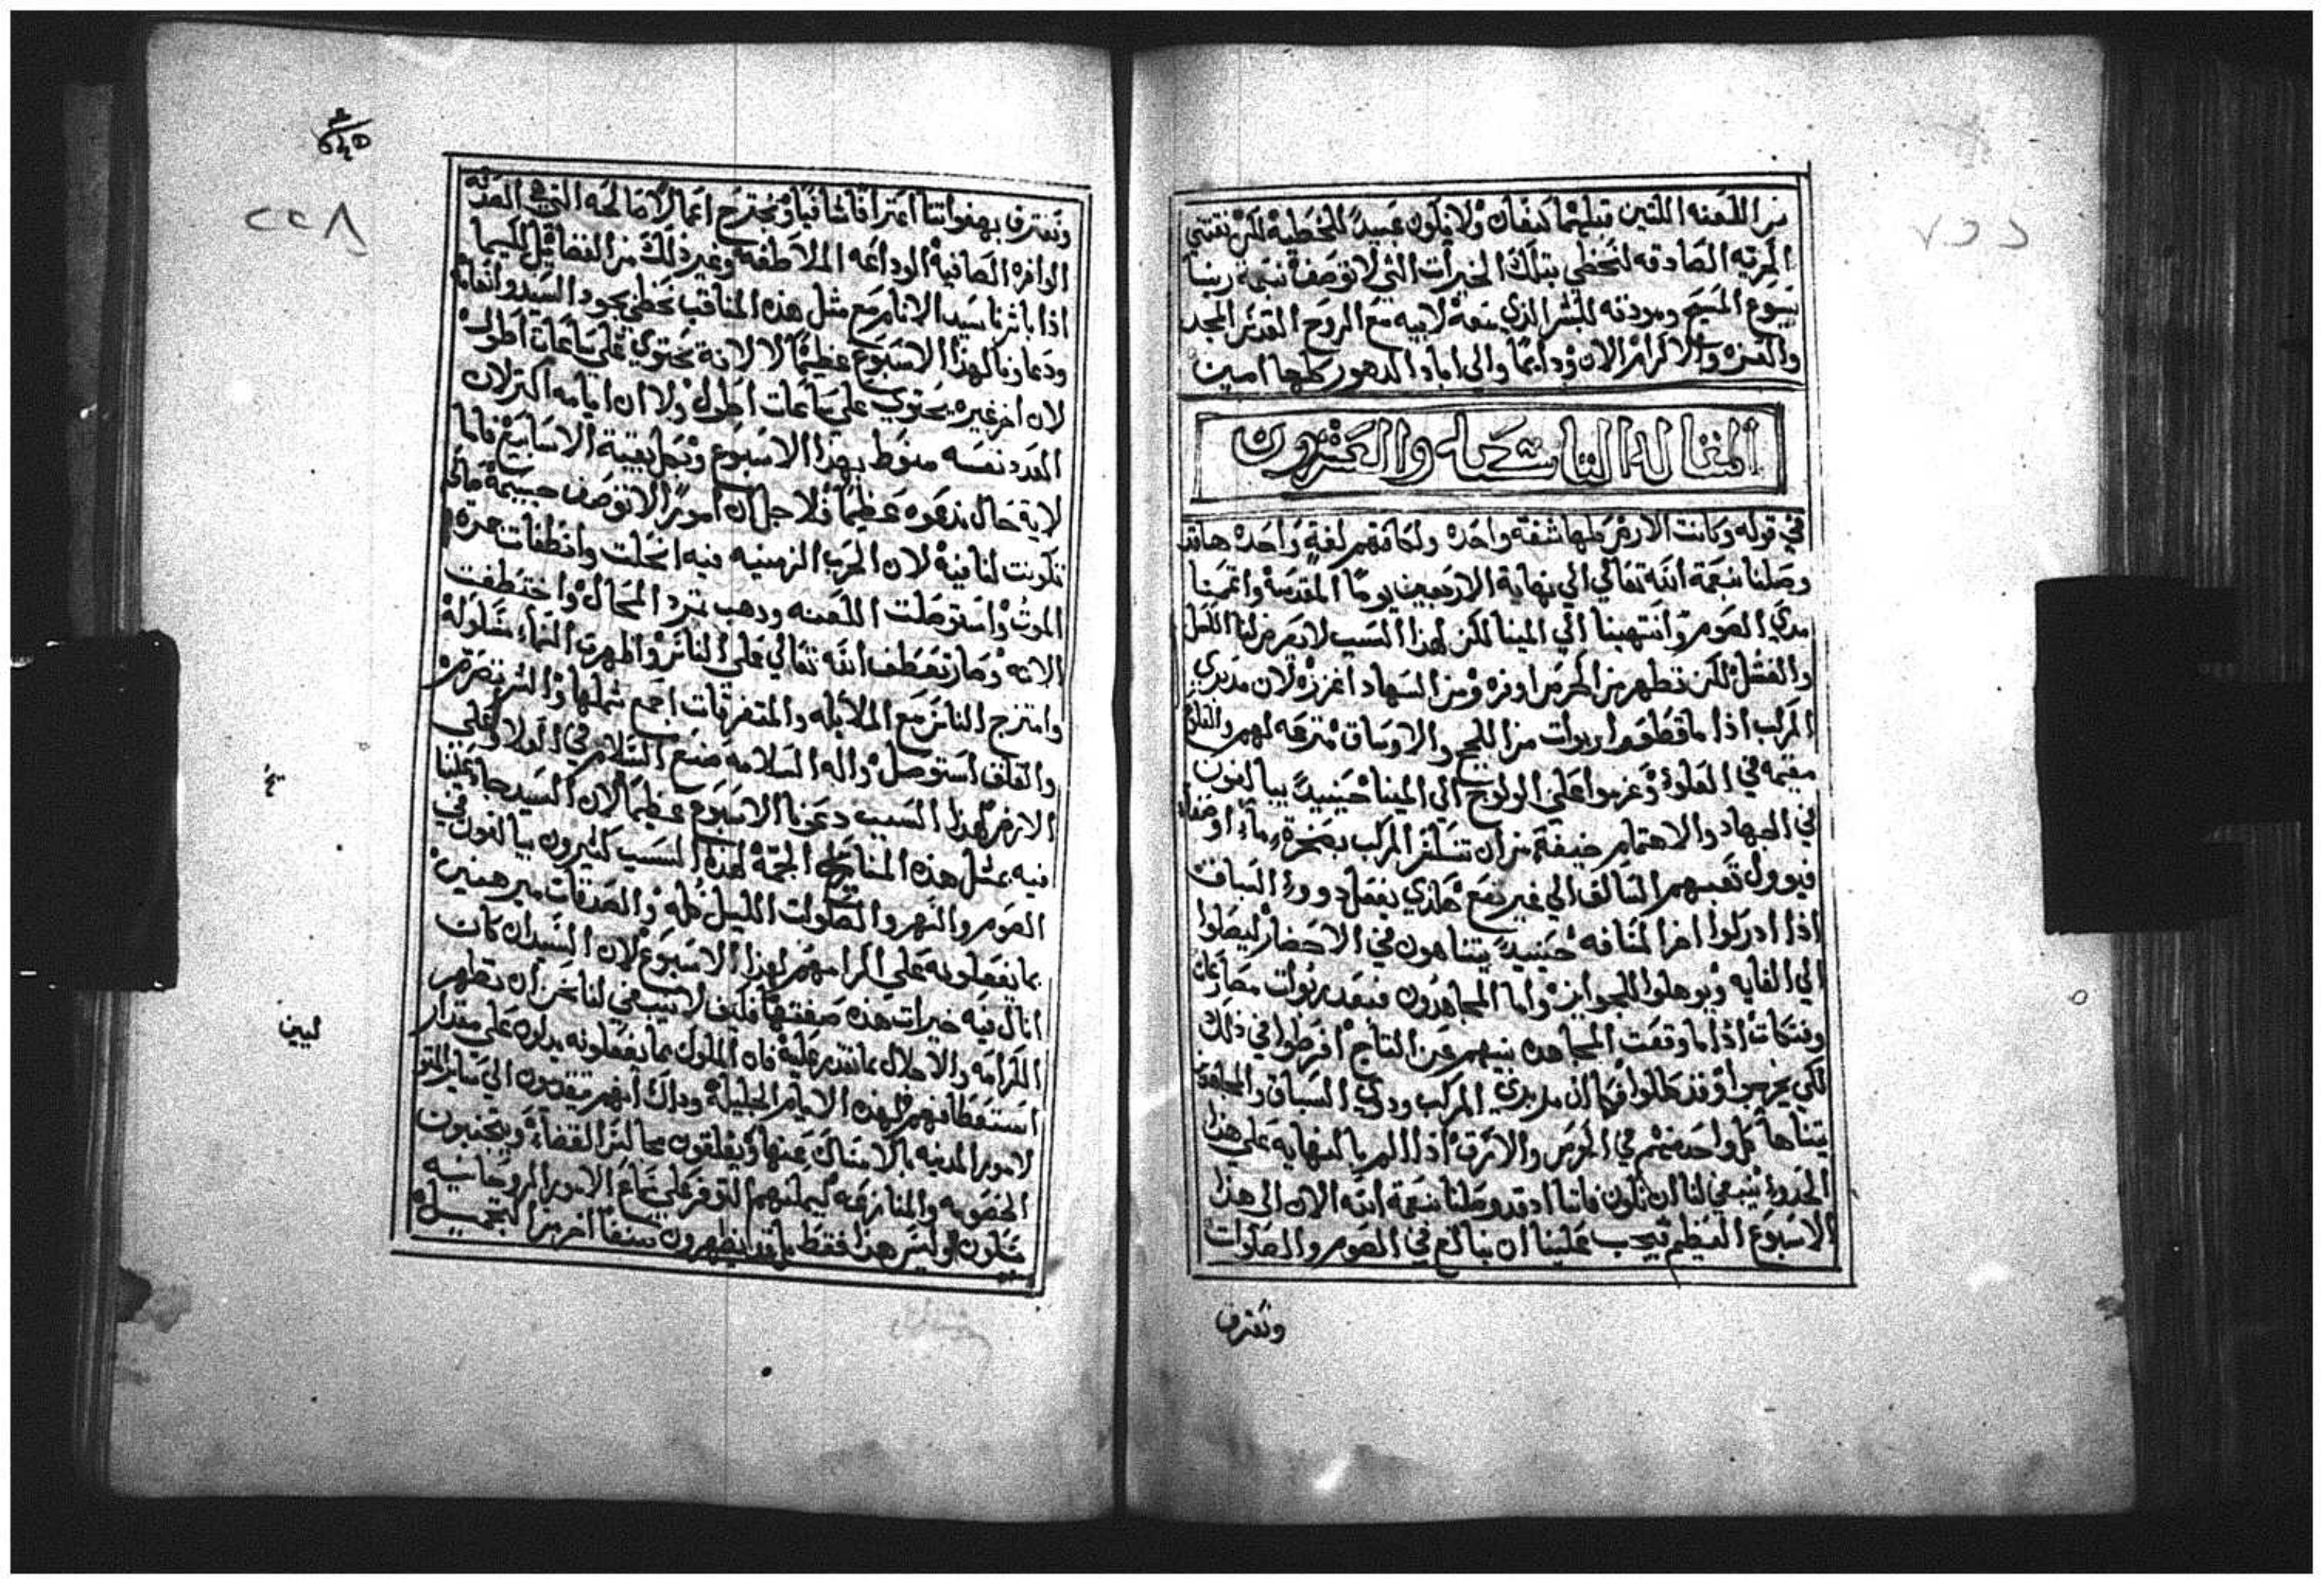 من اللعنه اللتين قبلهما كيفان ولا نكون عبيدا للخطيه لكن نقتني
الحريه الصادقه لنحظي بتلك الخيرات التي لا توصف بنعمة ربنا
يسوع المسيح ومودته للبشر الذي معه لابيه مع الروح القدس المجد
والعزه والاكرام الان ودايما والى اباد الدهور كلها امين
المقاله التاسعه والعشرون
في قوله وكانت الارض كلها شفة واحده ولكافتهم لغة واحده هاقد
وصلنا بنعمة الله تعالي الي نهاية الاربعين يوما المقدسة واتممنا
مدي الصوم وانتهينا الي المينا لكن لهذا السبب لا نعرض لنا الكسل
والفشل لكن نظهر من الحرص اوفره ومن السهاد اغزره لان مدبري
المركب اذا ما قطعوا ربوات من اللجج والاوساق مترعه لهم والقلوع
مقيمه في العلو وعزموا على الولوج الي المينا حينيدا يبالغون
في الجهاد والاهتمام خيفة من ان تنكسر المركب بصخرة ما او صفاه
فيوول تعبهم السالف الي غير نفع هكذي يفعل ذووا السباق
اذا ادركوا اخر المسافه حينيدا يتناهون في الاحضار ليصلوا
الي الغايه ويوهلوا للجوايز واما المجاهدون فبعد ربوات مصارعات
ونتكات اذا ما وقفت المجاهده بينهم عن التاج افرطوا في ذلك
لكي يخرجوا وقد كللوا فكما ان مدبري المركب وذوي السباق والمجاهدين
يتناها كل واحد منهم في الحرص والارق اذا الم بالنهايه على هذا
الحدو ينبغي لنا ان نكون فاننا اذ قد وصلنا بنعمة الله الان الى هذا
الاسبوع العظيم فيجب علينا ان نبالغ في الصوم والصلوات
ونعترف
٢٢٨
ونعترف بهفواتنا اعترافا شافيا ونجترح اعمالا صالحه التي هي الصدقه
الوافره الصافية الوداعه الملاطفه وغير ذلك من الفضايل لكيما
اذا باشرنا سيد الانام مع مثل هذه المناقب نحظى بجود السيد وانعامه
ودعاونا لهذا الاسبوع عظيما لا لانه يحتوي على ساعات اطول
لان اخر غيره يحتوي على ساعات اطول ولا ان ايامه اكثر لان
العدد نفسه منوط بهذا الاسبوع وبكل بقية الاسابيع فاما
لاية حال ندعوه عظيما فلاجل ان امورا لا توصف جسيمة صالحه
تكونت لنا فية لان الحرب الزمنيه فيه انحلت وانطفات جمرة
الموت واستوصلت اللعنه وذهب تمرد المحال واختطفت
الاته وصار تعطف الله تعالي على الناس واظهرت السماء مسلوكة
وامتزج الناس مع الملايكه والمتفرقات اجمع شملها والشر تصرم
والغلق استوصل واله السلامه صنع السلام في العلا وعلى
الارض لهذا السبب دعونا الاسبوع عظيما لان السيد جاد علينا
فيه بمثل هذه المنايح الجمة لهذا السبب كثيرون يبالغون في
الصوم والسهر والصلوات الليل كله والصدقات مبرهنين
بما يفعلونه على اكرامهم لهذا الاسبوع لان السيد ان كان
انال فيه خيرات هذه صفتها فكيف لا ينبغي لنا نحن ان نظهر
الكرامه والاجلال بما نقدر عليه فان الملوك بما يفعلونه يدلون على مقدار
استعظامهم لهذه الايام الجليلة وذاك انهم يتقدمون الي ساير المتو
لين
لامور المدنيه بالامساك عنها ويغلقون مجالس القضاء ويتجنبون
الخصومه والمنازعه ليمكنهم التوفر على سماع الامور الروحانيه
بسكون وليس هذا فقط بل قد يظهرون صنفا اخر من التجميل